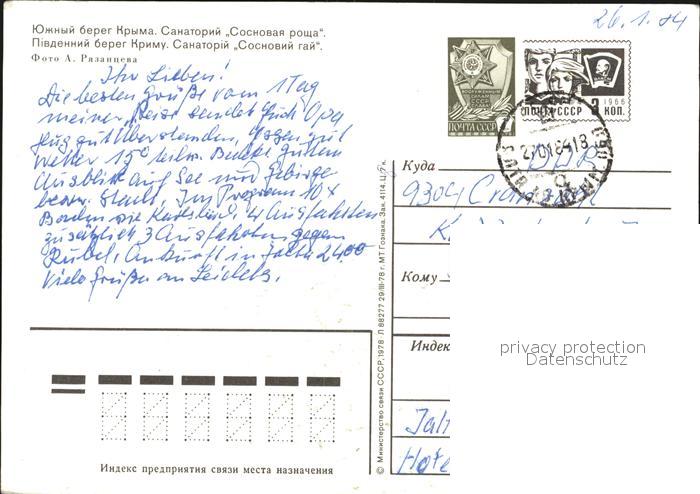 26.1.84
Южный берег Крыма. Санаторий „Сосновая роща“.
Південний берег Криму. Санаторій „Сосновий гай“.
Фото А. Рязанцева
Ihr Lieben!
Die besten Grüße vom 1 Tag
meiner Reise sendet Euch Opa
Flug gut überstanden, gegen gut
Wetter 15° teilw. Bedekt guten
Ausblick auf See und Gebirge
Im Program 10 x
4 Ausfahrten
zusätzlich 3 Ausfahrten gegen
Rubel. Ankunft in Jalta 2400
Viele Grüße an
ВООРУЖЕННЫМ
СИЛАМ
СССР
ПОЧТА СССР
1966
ПОЧТА СССР
3 КОП.
27018418
Куда
DDR
9304
Кому
Индек
Jalt
Hote
© Министерство связи СССР, 1978 · Л 88277 29/III-78 г. МТ Гознака. Зак. 4114. Ц. 7 к.
Индекс предприятия связи места назначения
privacy protection
Datenschutz